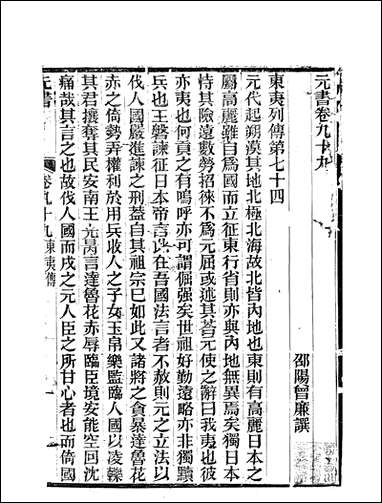 元書卷九十九
邵陽曾廉譔
東夷列傳第七十四
元代起朔漠其地北極北海故北皆內地也東則有高麗日本之
屬高麗雖自爲國而立征東行省則亦與內地無異焉矣獨日本
恃其險遠數勞招徠不爲元屈或述其荅元使之辭曰我夷也彼
亦夷也何貢之有嗚呼亦可謂倔强矣世祖好勤遠略亦非獨黷
兵也王磐諫征日本帝言此在吾國法言者不赦則元之立法以
伐人國嚴進諫之刑蓋自其祖宗已如此又諸將之貪暴達魯花
赤之倚勢弄權利於用兵收人之子女玉帛樂監臨人國以凌轢
其君攘奪其民安南王光昺言達魯花赤辱臨臣境安能空回沈
痛哉其言之也故伐人國而戍之元人臣之所甘心者也而倚國
元書 卷九十九東夷傳